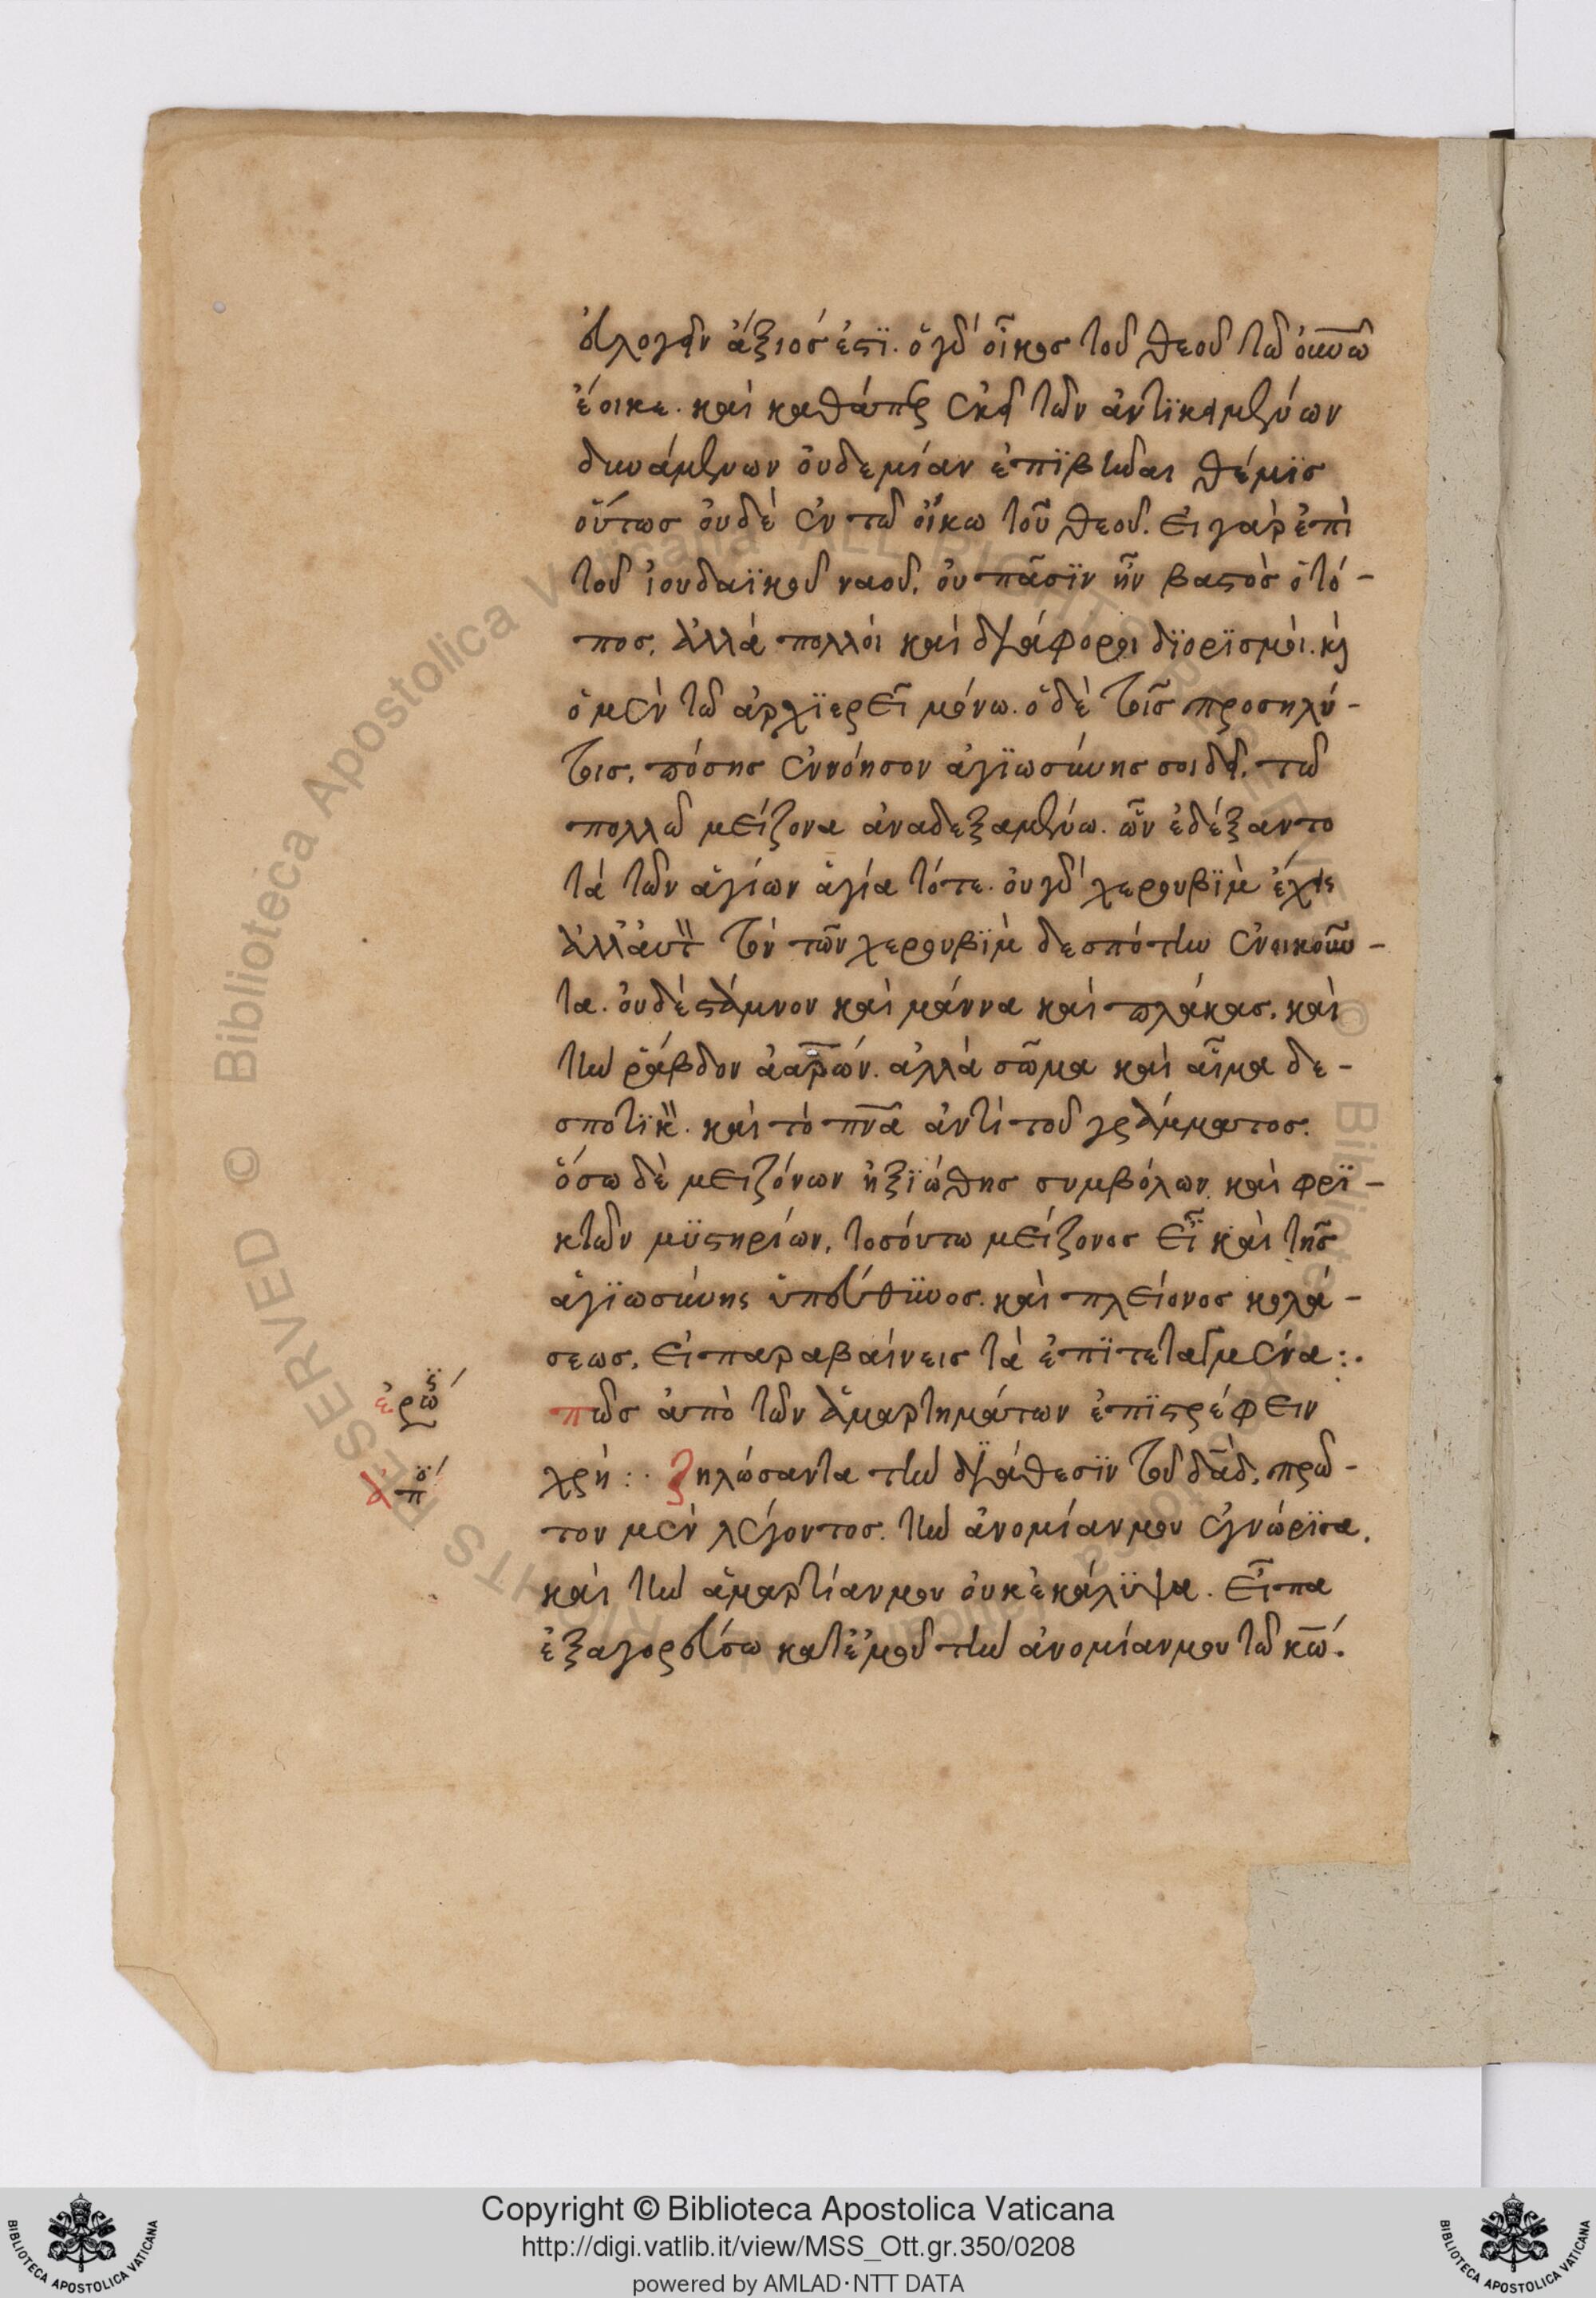 εὐλογεῖν ἄξιός ἐστϊ. ὁ γὰρ οἶκος τοῦ θεοῦ τῶ οὐνῶ
ἔοικε. καὶ καθάπερ ἐκεῖ τῶν ἀντϊκειμένων
δυνάμεων οὐδεμίαν ἐπϊβῆναι θέμϊς
οὕτως οὐδὲ ἐν τῶ οἴκω τοῦ θεοῦ. εἰ γὰρ ἐπὶ
τοῦ ἰουδαϊκοῦ ναοῦ, οὐ πᾶσϊν ἦν βατὸς ὁ τό-
πος, ἀλλὰ πολλοὶ καὶ διάφοροι δϊορϊσμοὶ. καὶ
ὁ μὲν τῶ ἀρχϊερεῖ μόνω. ὁ δὲ τοῖς προσηλύ-
τοις, πόσης ἐννόησον ἁγϊωσύνης σοι δεῖ, τῶ
πολλῶ μείζονα ἀναδεξαμένω. ὧν ἐδέξαντο
τὰ τῶν ἁγίων ἅγια τότε. οὐ γὰρ χερουβϊμ ἔχεις
ἀλλ' αὐτὸν τὸν τῶν χερουβϊμ δεσπότην ἐνοικοῦν-
τα. οὐδὲ στάμνον καὶ μάννα καὶ πλάκας. καὶ
τὴν ῥάβδον ἀαρῶν. ἀλλὰ σῶμα καὶ αἷμα δε-
σποτϊκὸν. καὶ τὸ πνα ἀντὶ τοῦ γράμματος.
ὅσω δὲ μειζόνων ἠξϊώθης συμβόλων καὶ φρϊ-
κτῶν μϋστηρίων, τοσούτω μείζονος εἶ καὶ τῆς
ἁγϊωσύνης ὑπεύθϋνος. καὶ πλείονος κολά-
σεως, εἰ παραβαίνεις τὰ ἐπϊτεταγμένα:.
ἐρώ πῶς ἀπὸ τῶν ἁμαρτημάτων ἐπϊστρέφειν
ἀπό χρή:. ζηλώσαντα τὴν διάθεσϊν τοῦ δαδ, πρῶ-
τον μὲν λέγοντος. τὴν ἀνομίαν μου ἐγνώρϊσα,
καὶ τὴν ἁμαρτίαν μου οὐκ ἐκάλϋψα. εἶπα
ἐξαγορεύσω κατ' ἐμοῦ τὴν ἀνομίαν μου τῶ κω.
Copyright © Biblioteca Apostolica Vaticana
http://digi.vatlib.it/view/MSS_Ott.gr.350/0208
powered by AMLAD·NTT DATA